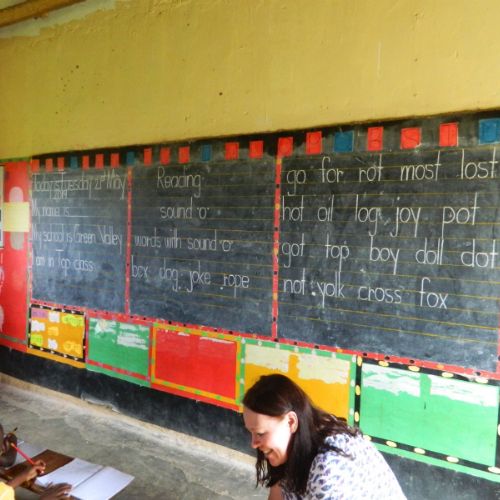 Today is Tuesday 21st May
2019
My name is
My school is Green Valley
I am in top class
Reading
sound 'o'
words with sound 'o'
box dog joke rope
go for rot most lost
hot oil log joy pot
got top boy doll dot
not yolk cross fox